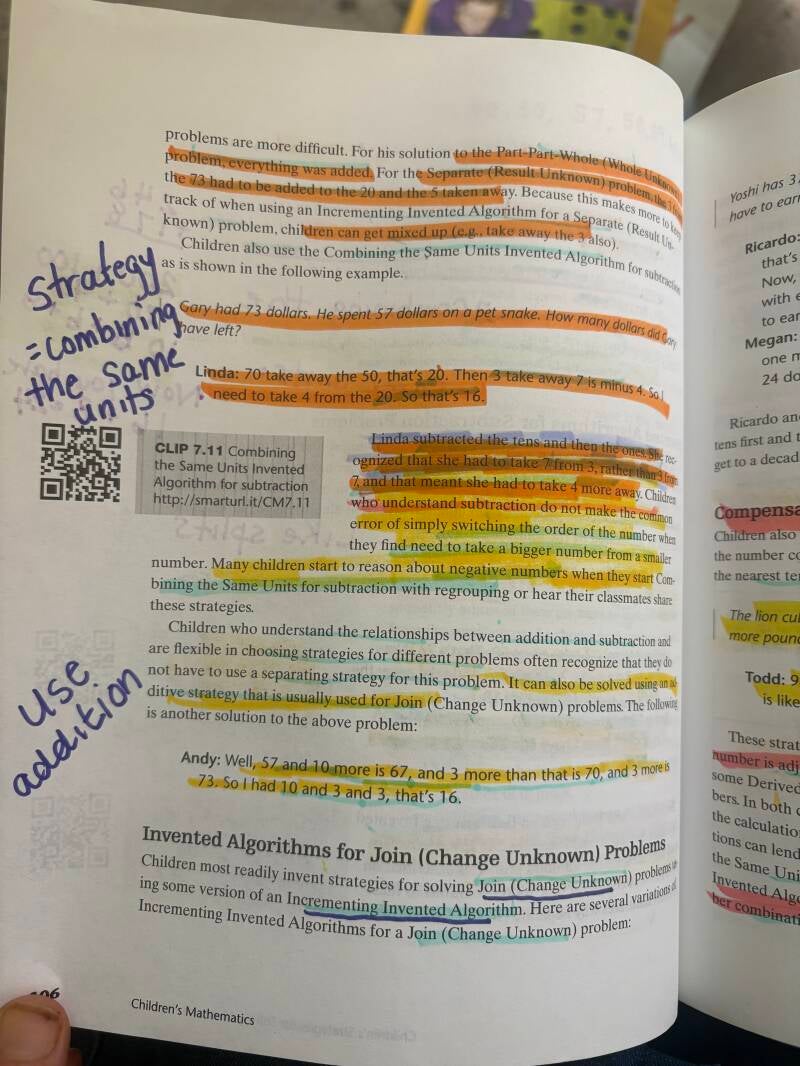 problems are more difficult. For his solution to the Part-Part-Whole (Whole Unknown)
problem, everything was added. For the Separate (Result Unknown) problem, the
the 73 had to be added to the 20 and the 5 taken away. Because this makes more to keep
track of when using an Incrementing Invented Algorithm for a Separate (Result Un-
known) problem, children can get mixed up (e.g., take away the 3 also).
Children also use the Combining the Same Units Invented Algorithm for subtraction
as is shown in the following example.
Strategy
=combining
the same
units
Gary had 73 dollars. He spent 57 dollars on a pet snake. How many dollars did Gary
have left?
Linda: 70 take away the 50, that's 20. Then 3 take away 7 is minus 4. So I
need to take 4 from the 20. So that's 16.
CLIP 7.11 Combining
the Same Units Invented
Algorithm for subtraction
http://smarturl.it/CM7.11
Linda subtracted the tens and then the ones. She rec-
ognized that she had to take 7 from 3, rather than 3 from
7, and that meant she had to take 4 more away. Children
who understand subtraction do not make the common
error of simply switching the order of the number when
they find need to take a bigger number from a smaller
number. Many children start to reason about negative numbers when they start Com-
bining the Same Units for subtraction with regrouping or hear their classmates share
these strategies.
Children who understand the relationships between addition and subtraction and
are flexible in choosing strategies for different problems often recognize that they do
not have to use a separating strategy for this problem. It can also be solved using an ad-
ditive strategy that is usually used for Join (Change Unknown) problems. The following
is another solution to the above problem:
use
addition
Andy: Well, 57 and 10 more is 67, and 3 more than that is 70, and 3 more is
73. So I had 10 and 3 and 3, that's 16.
Invented Algorithms for Join (Change Unknown) Problems
Children most readily invent strategies for solving Join (Change Unknown) problems
ing some version of an Incrementing Invented Algorithm. Here are several variations of
Incrementing Invented Algorithms for a Join (Change Unknown) problem:
106
Children's Mathematics
Yoshi has 3
have to earn
Ricardo:
that's
Now,
with
to ear
Megan:
one m
24 do
Ricardo an
tens first and t
get to a decad
Compensa
Children also
the number co
the nearest ten
The lion cu
more poun
Todd: 9
is like
These strat
number is adj
some Derived
bers. In both
the calculatio
tions can lend
the Same Uni
Invented Algo
ber combinati